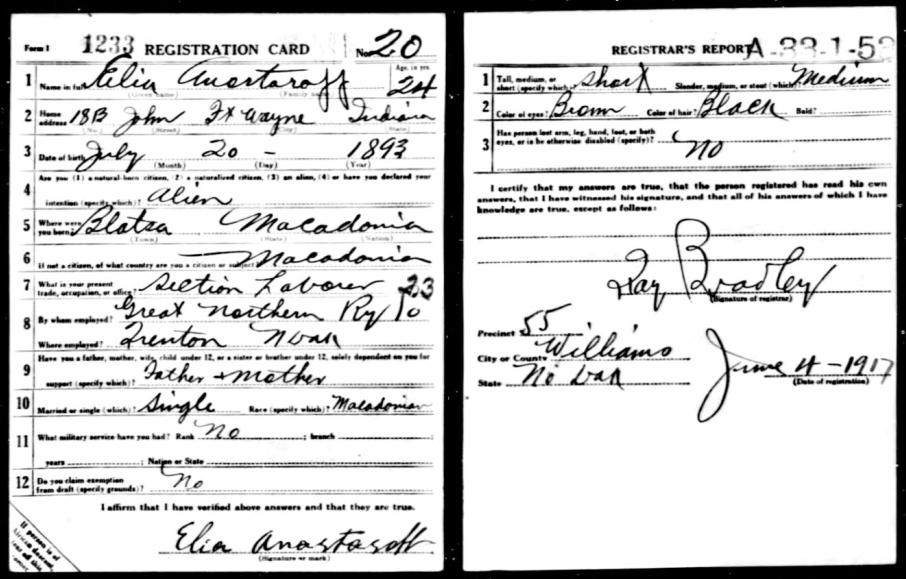 Form 1 1233 REGISTRATION CARD No. 20
1 Name in full Elia Anastasoff Age, in yrs. 24
(Given name) (Family name)
2 Home address 1813 John Ft Wayne Indiana
(No.) (Street) (City) (State)
3 Date of birth July 20 - 1893
(Month) (Day) (Year)
4 Are you (1) a natural-born citizen, (2) a naturalized citizen, (3) an alien, (4) or have you declared your
intention (specify which)? Alien
5 Where were you born? Blatsa Macadonia
(Town) (State) (Nation)
6 If not a citizen, of what country are you a citizen or subject? Macadonia
7 What is your present trade, occupation, or office? Section Laborer 23
8 By whom employed? Great Northern Ry Co
Where employed? Trenton N Dak
9 Have you a father, mother, wife, child under 12, or a sister or brother under 12, solely dependent on you for
support (specify which)? Father + Mother
10 Married or single (which)? Single Race (specify which)? Macadonian
11 What military service have you had? Rank No ; branch ;
years ; Nation or State
12 Do you claim exemption from draft (specify grounds)? No
I affirm that I have verified above answers and that they are true.
Elia Anastasoff
(Signature or mark)
If person is of
African descent,
REGISTRAR'S REPORT A-33-1-53
1 Tall, medium, or short (specify which)? Short Slender, medium, or stout (which)? Medium
2 Color of eyes? Brown Color of hair? Black Bald?
3 Has person lost arm, leg, hand, foot, or both
eyes, or is he otherwise disabled (specify)? No
I certify that my answers are true, that the person registered has read his own
answers, that I have witnessed his signature, and that all of his answers of which I have
knowledge are true, except as follows:
Ray Bradley
(Signature of registrar)
Precinct 55
City or County Williams
State No Dak June 4 - 1917
(Date of registration)